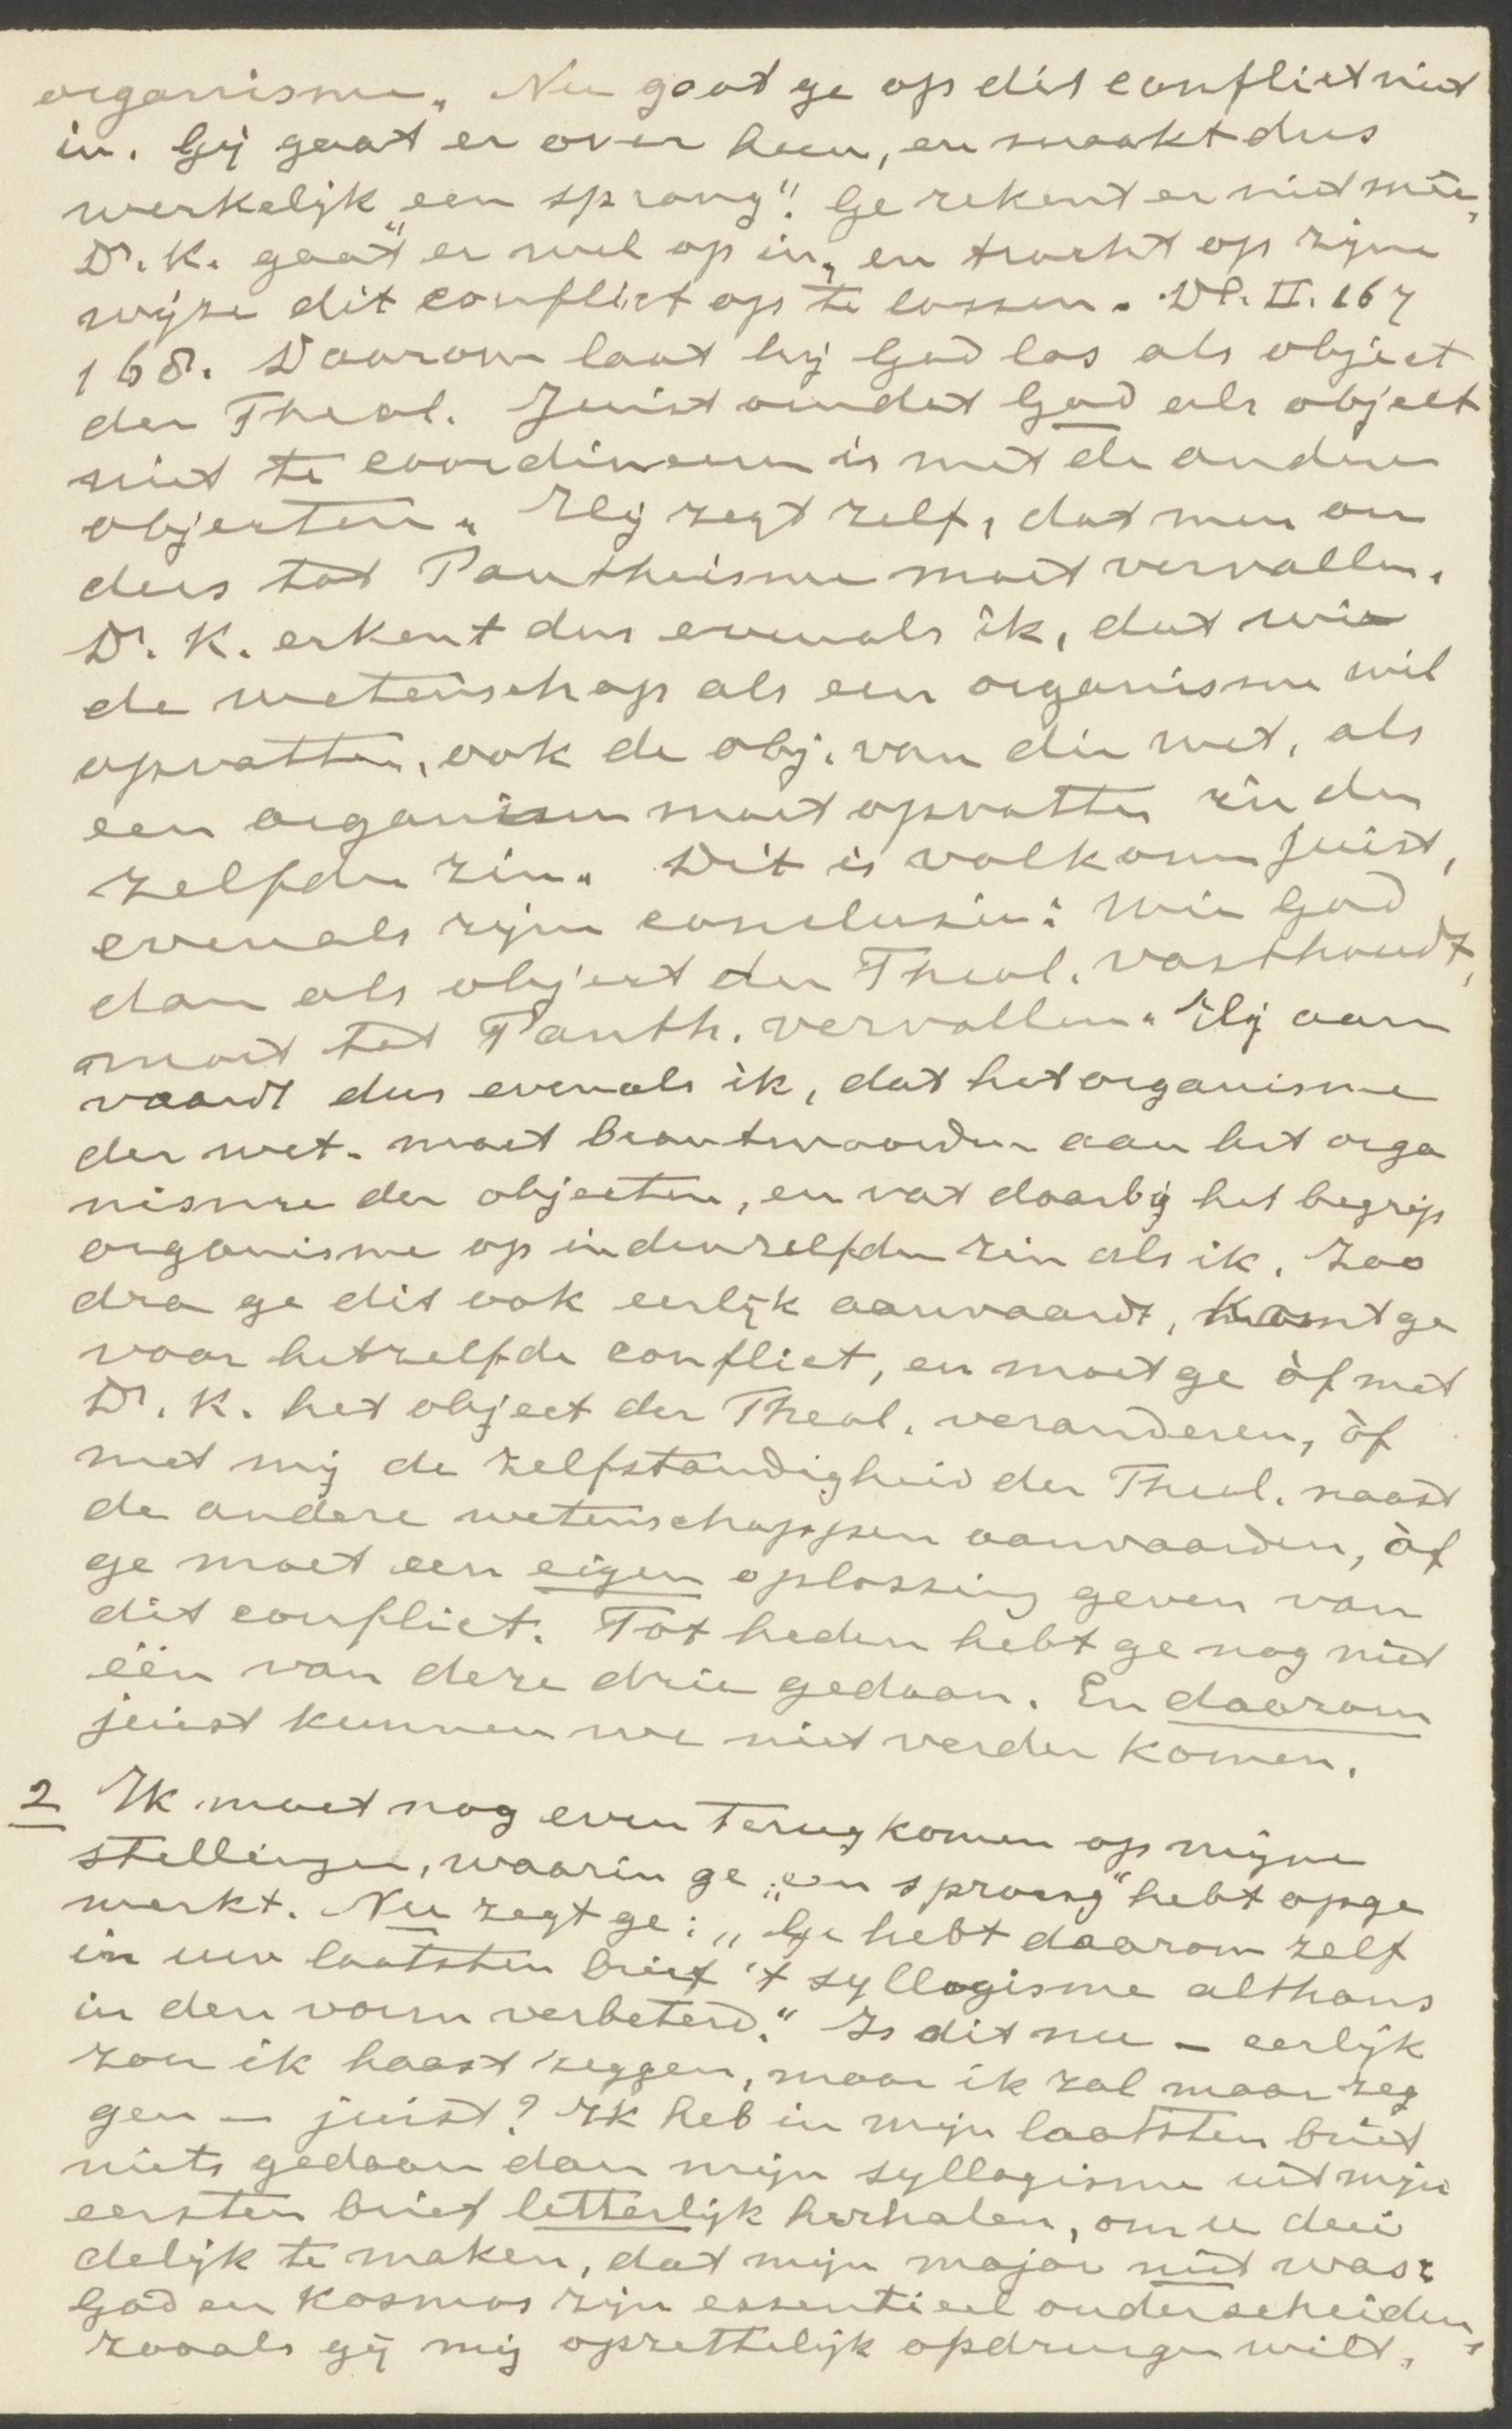 organisme. Nu gaat ge op dit conflict niet
in. Gij gaat er over heen, en maakt dus
werkelijk „een sprong". Ge rekent er niet meê,
Dr. K. gaat er wel op in, en tracht op zijne
wijze dit conflict op te lossen. Dl. II. 167
168. Daarom laat hij God los als object
der Theol. Juist omdat God als object
niet te coordineeren is met de andere
objecten. Hij zegt zelf, dat men an
ders tot Pantheisme moet vervallen.
Dr. K. erkent dus evenals ik, dat wie
de wetenschap als een organisme wil
opvatten, ook de obj. van die wet. als
een organism moet opvatten in den
zelfden zin. Dit is volkomen juist,
evenals zijne conclusie: Wie God
dan als object der Theol. vasthoudt,
moet tot Panth. vervallen. Hij aan
vaardt dus evenals ik, dat het organisme
der wet. moet beantwoorden aan het orga
nisme der objecten, en vat daarbij het begrip
organisme op in denzelfden zin als ik. Zoo
dra ge dit ook eerlijk aanvaardt, komt ge
voor hetzelfde conflict, en moet ge òf met
Dr. K. het object der Theol. veranderen, òf
met mij de zelfstandigheid der Theol. naast
de andere wetenschappen aanvaarden, òf
ge moet een eigen oplossing geven van
dit conflict. Tot heden hebt ge nog niet
één van deze drie gedaan. En daarom
juist kunnen we niet verder komen.
2 Ik moet nog even terugkomen op mijne
stellingen, waarin ge „een sprong" hebt opge
merkt. Nu zegt ge: „Ge hebt daarom zelf
in uw laatsten brief 't syllogisme althans
in den vorm verbeterd." Is dit nu - eerlijk
zou ik haast zeggen, maar ik zal maar zeg
gen - juist? Ik heb in mijn laatsten brief
niets gedaan dan mijn syllogisme uit mijn
eersten brief letterlijk herhalen, om u dui
delijk te maken, dat mijn major niet was:
God en kosmos zijn essentieel onderscheiden,
zooals gij mij opzettelijk opdringen wilt,